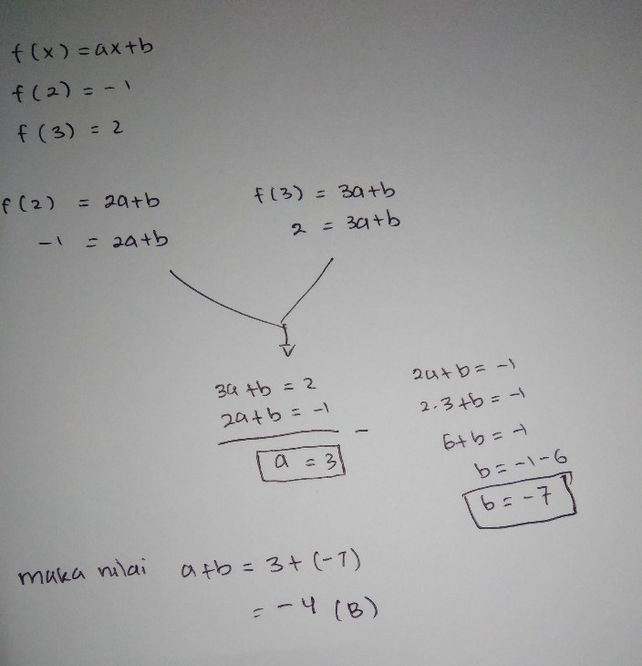 f(x) = ax+b
f(2) = -1
f(3) = 2
f(2) = 2a+b
-1 = 2a+b
f(3) = 3a+b
2 = 3a+b
3a+b = 2
2a+b = -1
-
a = 3
2a+b = -1
2.3+b = -1
6+b = -1
b = -1-6
b = -7
maka nilai a+b = 3+(-7)
= -4 (B)